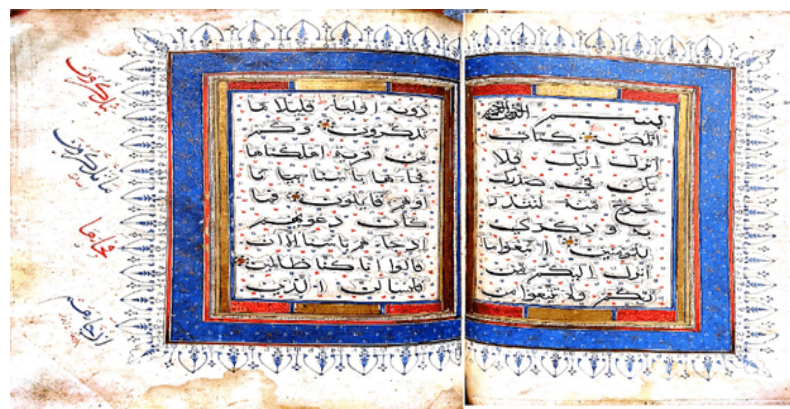 بسم الله الرحمن الرحيم
المص كتاب
انزل اليك فلا
يكن في صدرك
حرج منه لتنذر
به و ذكرى
للمومنين اتبعوا ما
انزل اليكم من
ربكم ولا تتبعوا من
دونه اولياء قليلا ما
تذكرون وكم
من قرية اهلكناها
فجاءها باسنا بياتا
اوهم قايلون فما
كان دعويهم
اذ جاءهم باسنا الا ان
قالوا انا كنا ظالمين
فلنسالن الذين